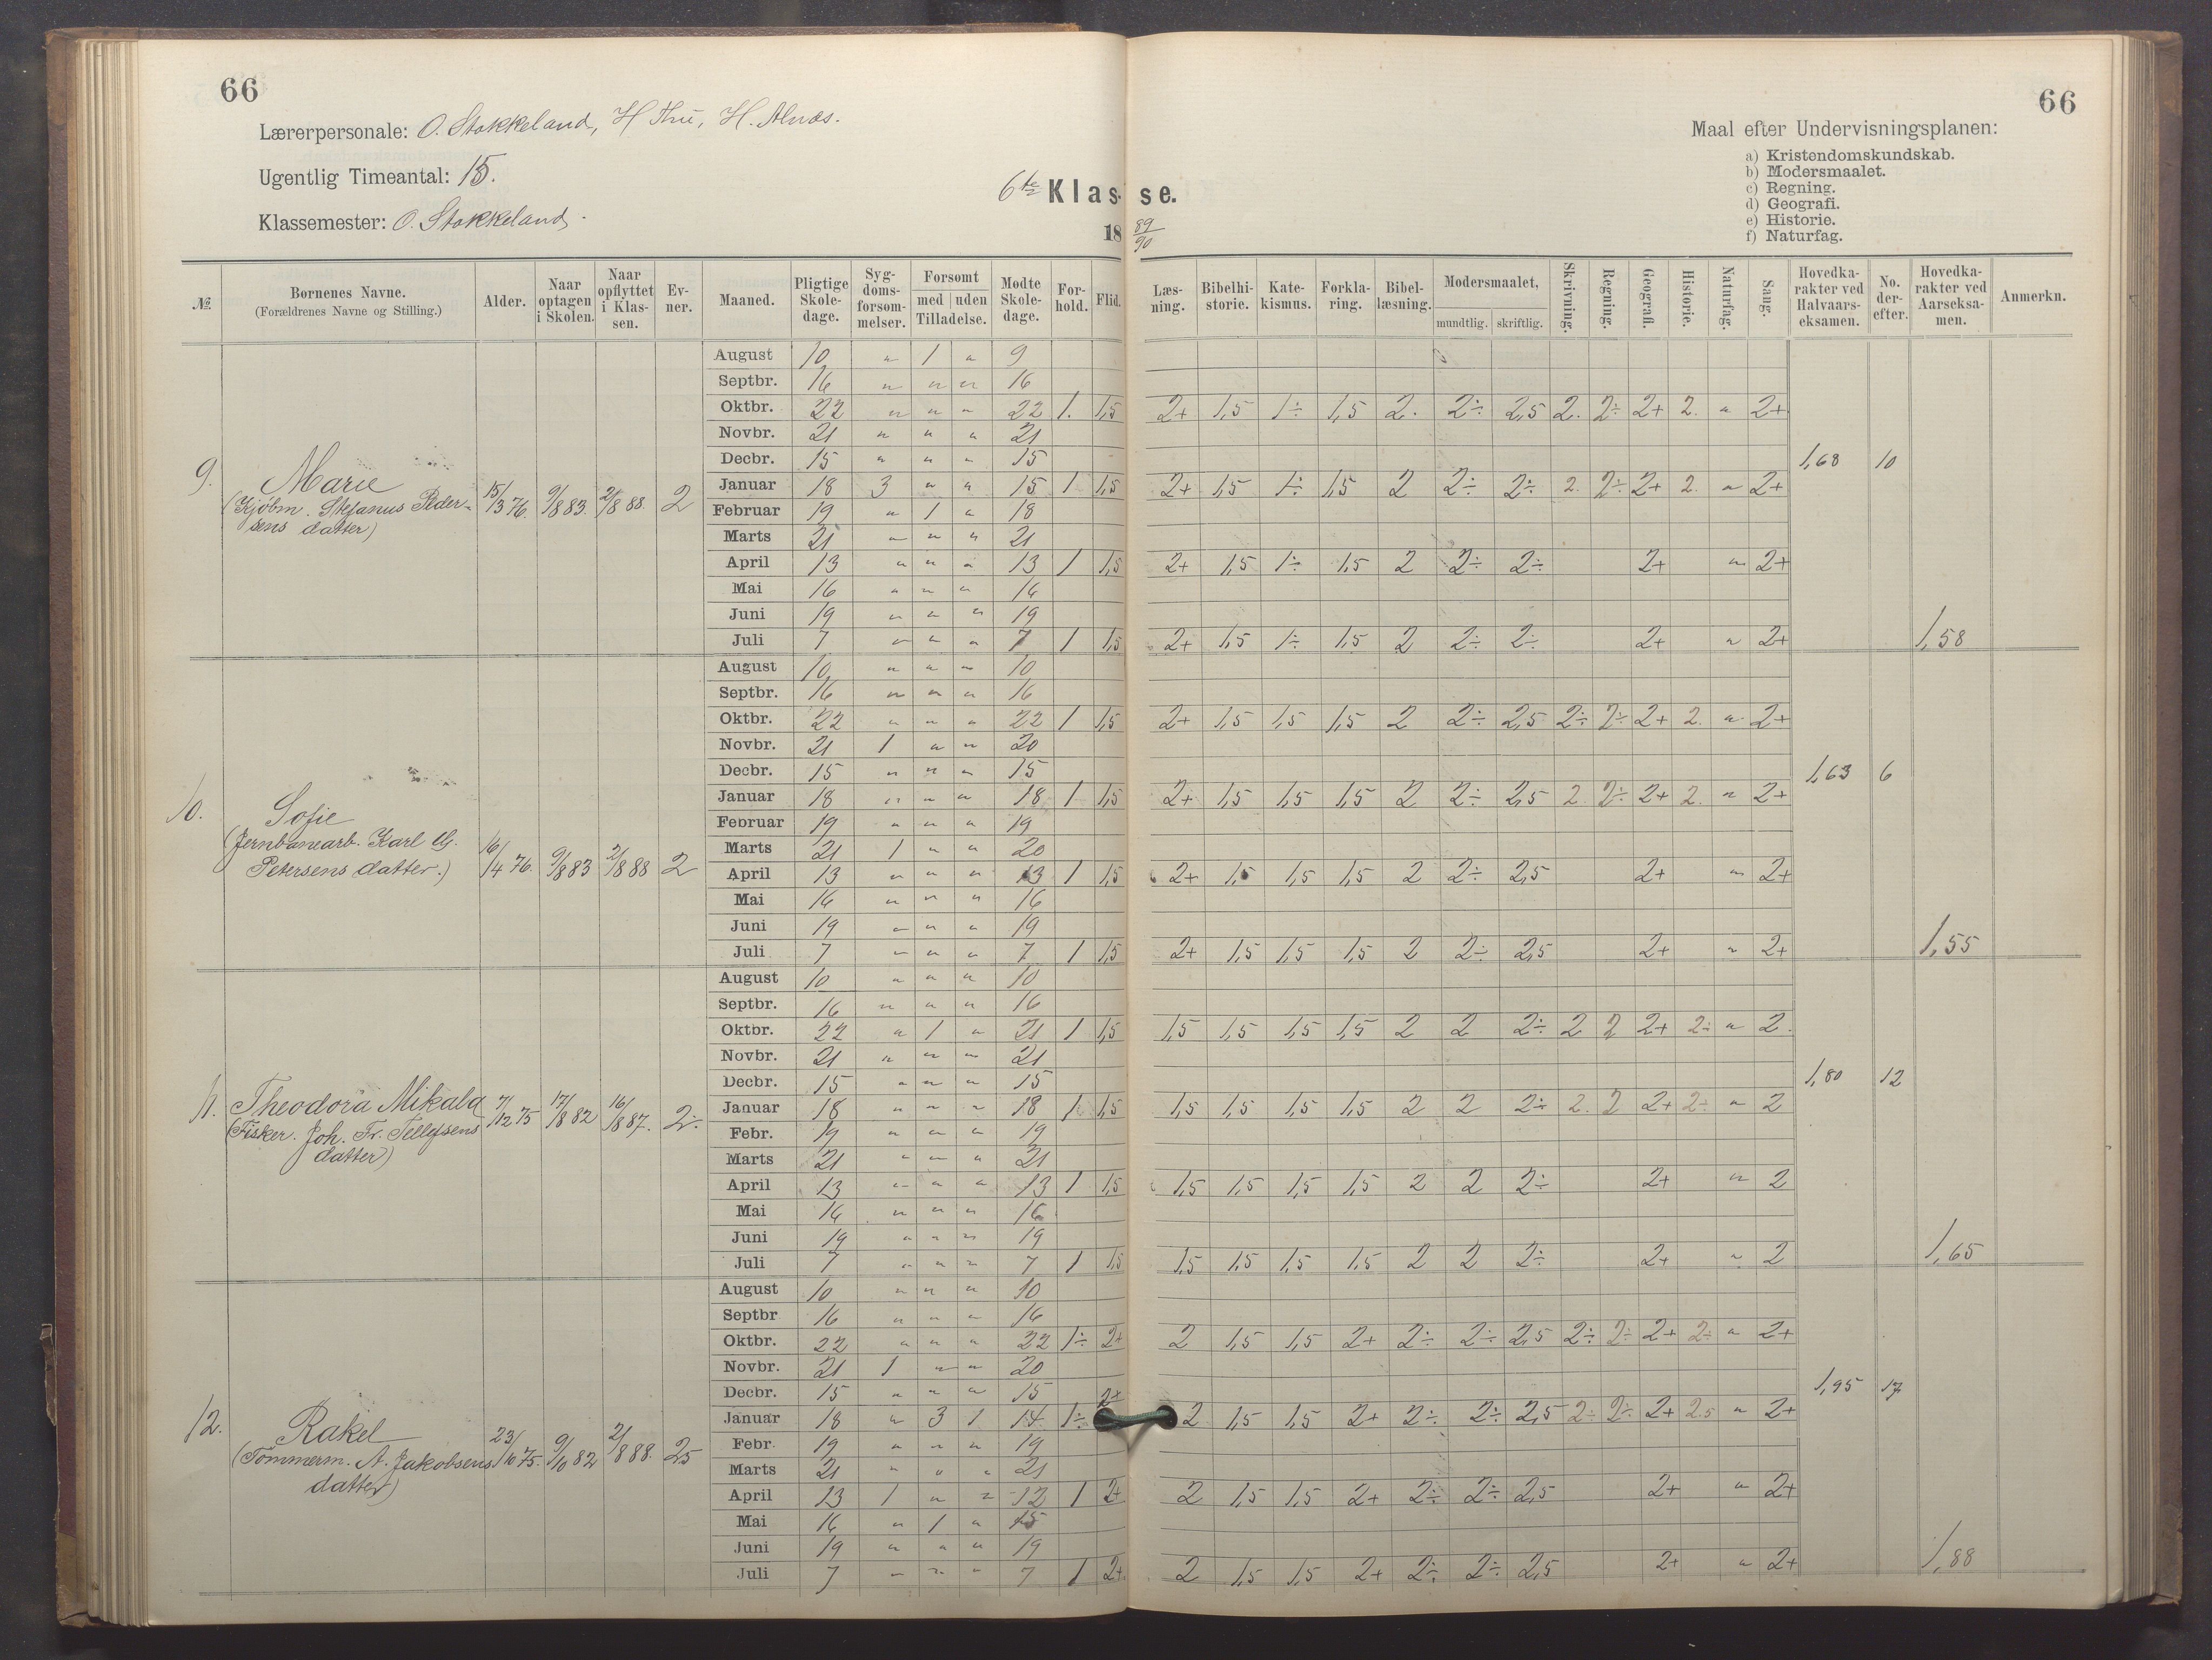 66
66
Lærerpersonale: O. Stokkeland, H Thu, H. Alnæs.
Ugentlig Timeantal: 15.
Klassemester: O. Stokkeland.
6te Klasse.
18 89/90
Maal efter Undervisningsplanen:
a) Kristendomskundskab.
b) Modersmaalet.
c) Regning.
d) Geografi.
e) Historie.
f) Naturfag.
№ Børnenes Navne. (Forældrenes Navne og Stilling.) Alder. Naar optagen i Skolen. Naar opflyttet i Klassen. Evner. Maaned. Pligtige Skoledage. Sygdomsforsømmelser. Forsømt med uden Tilladelse. Mødte Skoledage. Forhold. Flid. Læsning. Bibelhistorie. Katekismus. Forklaring. Bibellæsning. Modersmaalet, mundtlig. skriftlig. Skrivning. Regning. Geografi. Historie. Naturfag. Sang. Hovedkarakter ved Halvaarseksamen. No. derefter. Hovedkarakter ved Aarseksamen. Anmerkn.
9. Marie (Kjøbm. Stefanus Pedersens datter) 15/3 76. 9/8 83. 2/8 88. 2
August 10 " 1 " 9
Septbr. 16 " " " 16
Oktbr. 22 " " " 22 1. 1,5 2+ 1,5 1÷ 1,5 2. 2÷ 2,5 2. 2÷ 2+ 2. " 2+
Novbr. 21 " " " 21
Decbr. 15 " " " 15 1,68 10
Januar 18 3 " " 15 1 1,5 2+ 1,5 1÷ 1,5 2 2÷ 2÷ 2. 2÷ 2+ 2. " 2+
Februar 19 " 1 " 18
Marts 21 " " " 21
April 13 " " " 13 1 1,5 2+ 1,5 1÷ 1,5 2 2÷ 2÷ 2+ " 2+
Mai 16 " " " 16
Juni 19 " " " 19
Juli 7 " " " 7 1 1,5 2+ 1,5 1÷ 1,5 2 2÷ 2÷ 2+ " 2+ 1,58
10. Sofie (Jernbanearb. Karl G. Petersens datter.) 16/4 76. 9/8 83 2/8 88 2
August 10 " " " 10
Septbr. 16 " " " 16
Oktbr. 22 " " " 22 1 1,5 2+ 1,5 1,5 1,5 2 2÷ 2,5 2÷ 2÷ 2+ 2. " 2+
Novbr. 21 1 " " 20
Decbr. 15 " " " 15 1,63 6
Januar 18 " " " 18 1 1,5 2+ 1,5 1,5 1,5 2 2÷ 2,5 2. 2÷ 2+ 2. " 2+
Februar 19 " " " 19
Marts 21 1 " " 20
April 13 " " " 13 1 1,5 2+ 1,5 1,5 1,5 2 2÷ 2,5 2+ " 2+
Mai 16 " " " 16
Juni 19 " " " 19
Juli 7 " " " 7 1 1,5 2+ 1,5 1,5 1,5 2 2÷ 2,5 2+ " 2+ 1,55
11. Theodora Mikala (Fisker. Joh. Fr. Tellefsens datter) 7/12 75 17/8 82 16/8 87. 2÷
August 10 " " " 10
Septbr. 16 " " " 16
Oktbr. 22 " 1 " 21 1 1,5 1,5 1,5 1,5 1,5 2 2 2÷ 2 2 2+ 2÷ " 2.
Novbr. 21 " " " 21
Decbr. 15 " " " 15 1,80 12
Januar 18 " " " 18 1 1,5 1,5 1,5 1,5 1,5 2 2 2÷ 2. 2 2+ 2÷ " 2
Febr. 19 " " " 19
Marts 21 " " " 21
April 13 " " " 13 1 1,5 1,5 1,5 1,5 1,5 2 2 2÷ 2+ " 2
Mai 16 " " " 16
Juni 19 " " " 19
Juli 7 " " " 7 1 1,5 1,5 1,5 1,5 1,5 2 2 2÷ 2+ " 2 1,65
12. Rakel (Tømmerm. A. Jakobsens datter) 23/10 75. 9/10 82 2/8 88. 2,5
August 10 " " " 10
Septbr 16 " " " 16
Oktbr. 22 " " " 22 1÷ 2+ 2 1,5 1,5 2+ 2÷ 2÷ 2,5 2÷ 2÷ 2+ 2÷ " 2+
Novbr. 21 1 " " 20
Decbr. 15 " " " 15 1,95 17
Januar 18 " 3 1 14 1÷ 2+ 2 1,5 1,5 2+ 2÷ 2÷ 2,5 2÷ 2÷ 2+ 2,5 " 2+
Febr. 19 " " " 19
Marts 21 " " " 21
April 13 1 " " 12 1 2+ 2 1,5 1,5 2+ 2÷ 2÷ 2,5 2+ " 2+
Mai 16 " 1 " 15
Juni 19 " " " 19
Juli 7 " " " 7 1 2+ 2 1,5 1,5 2+ 2÷ 2÷ 2,5 2+ " 2+ 1,88